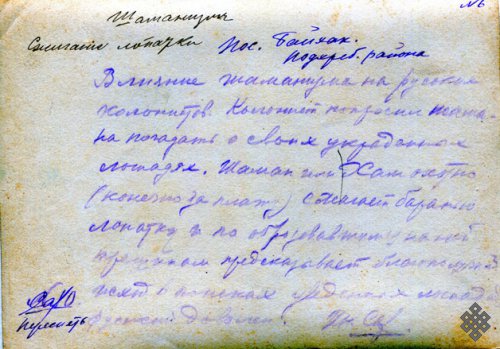 №6
Шаманизм
Сжигание лопатки
Пос. Байхак.
Подхреб. района
Влияние шаманизма на русских
колонистов. Колонист попросил шама-
на погадать о своих украденных
лошадях. Шаман или Хам охотно
(конечно за плату) сжигает баранью
лопатку и по образовавшимся на ней
трещинам предсказывает благополучный
исход о поисках уведенных лошадей
русской
Переснять